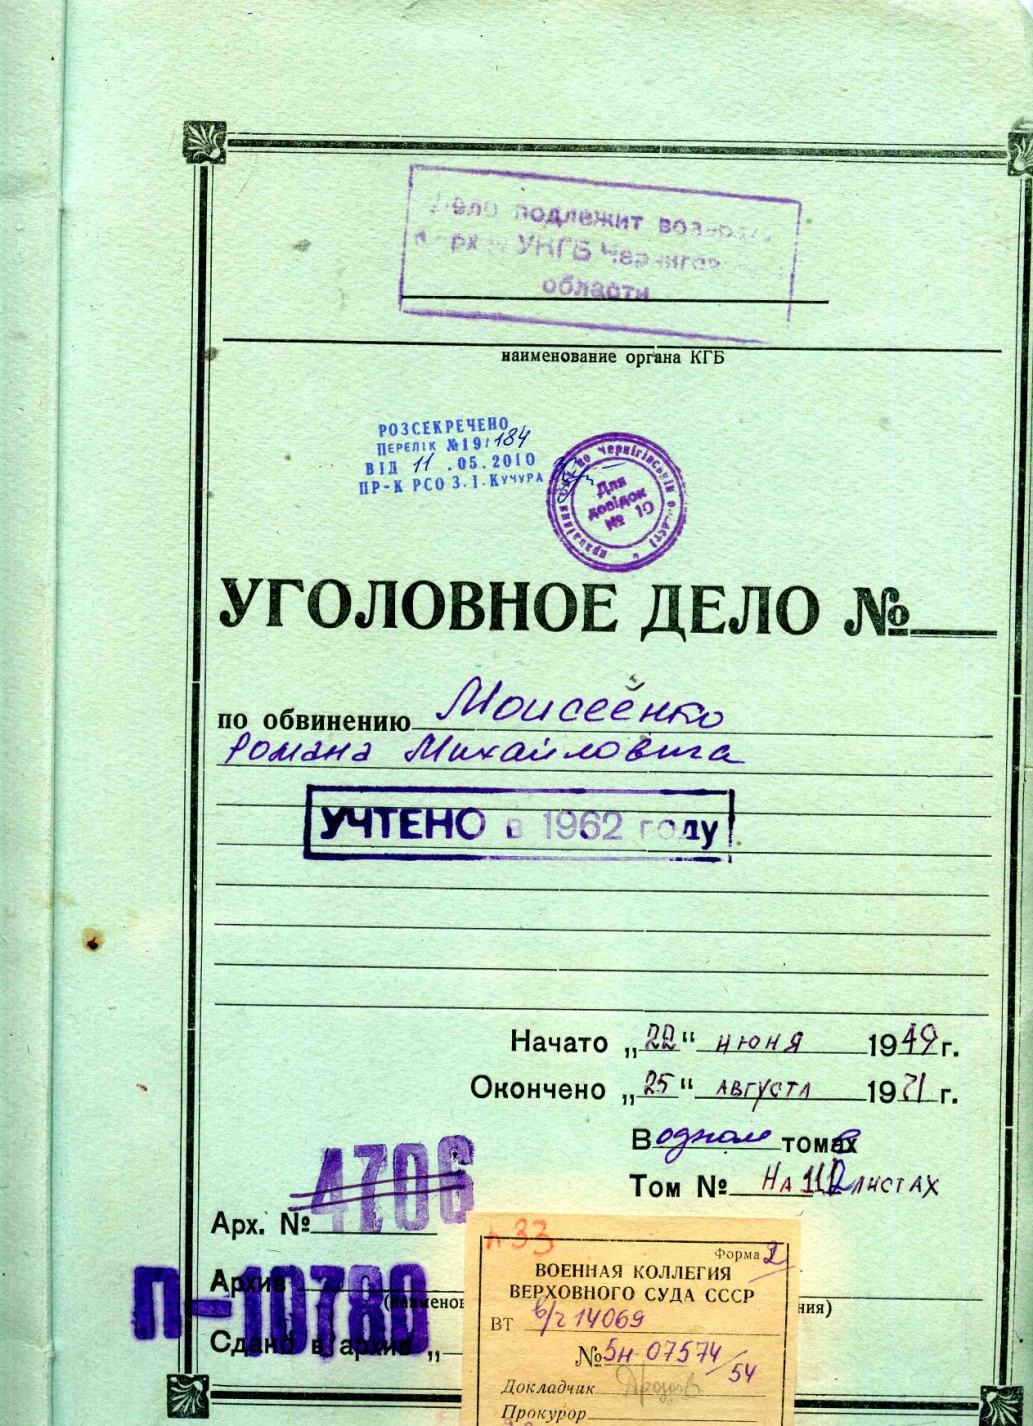 Дело подлежит
УКГБ
области
наименование органа КГБ
РОЗСЕКРЕЧЕНО
ПЕРЕЛІК №19/184
ВІД 11 .05.2010
ПР-К РСО З.І.КУЧУРА
Для
довідок
№ 10
УГОЛОВНОЕ ДЕЛО №
по обвинению Моисеенко
Романа Михайловича
УЧТЕНО в 1962 году
Начато „22“ июня 1949 г.
Окончено „25“ августа 19 г.
В одном томах
Том № На листах
4706
Арх. №
Архив
П-10780
Сдано в архив „
Форма 2
ВОЕННАЯ КОЛЛЕГИЯ
ВЕРХОВНОГО СУДА СССР
ВТ в/ч 14069
№ 5н-07574/54
Докладчик
Прокурор